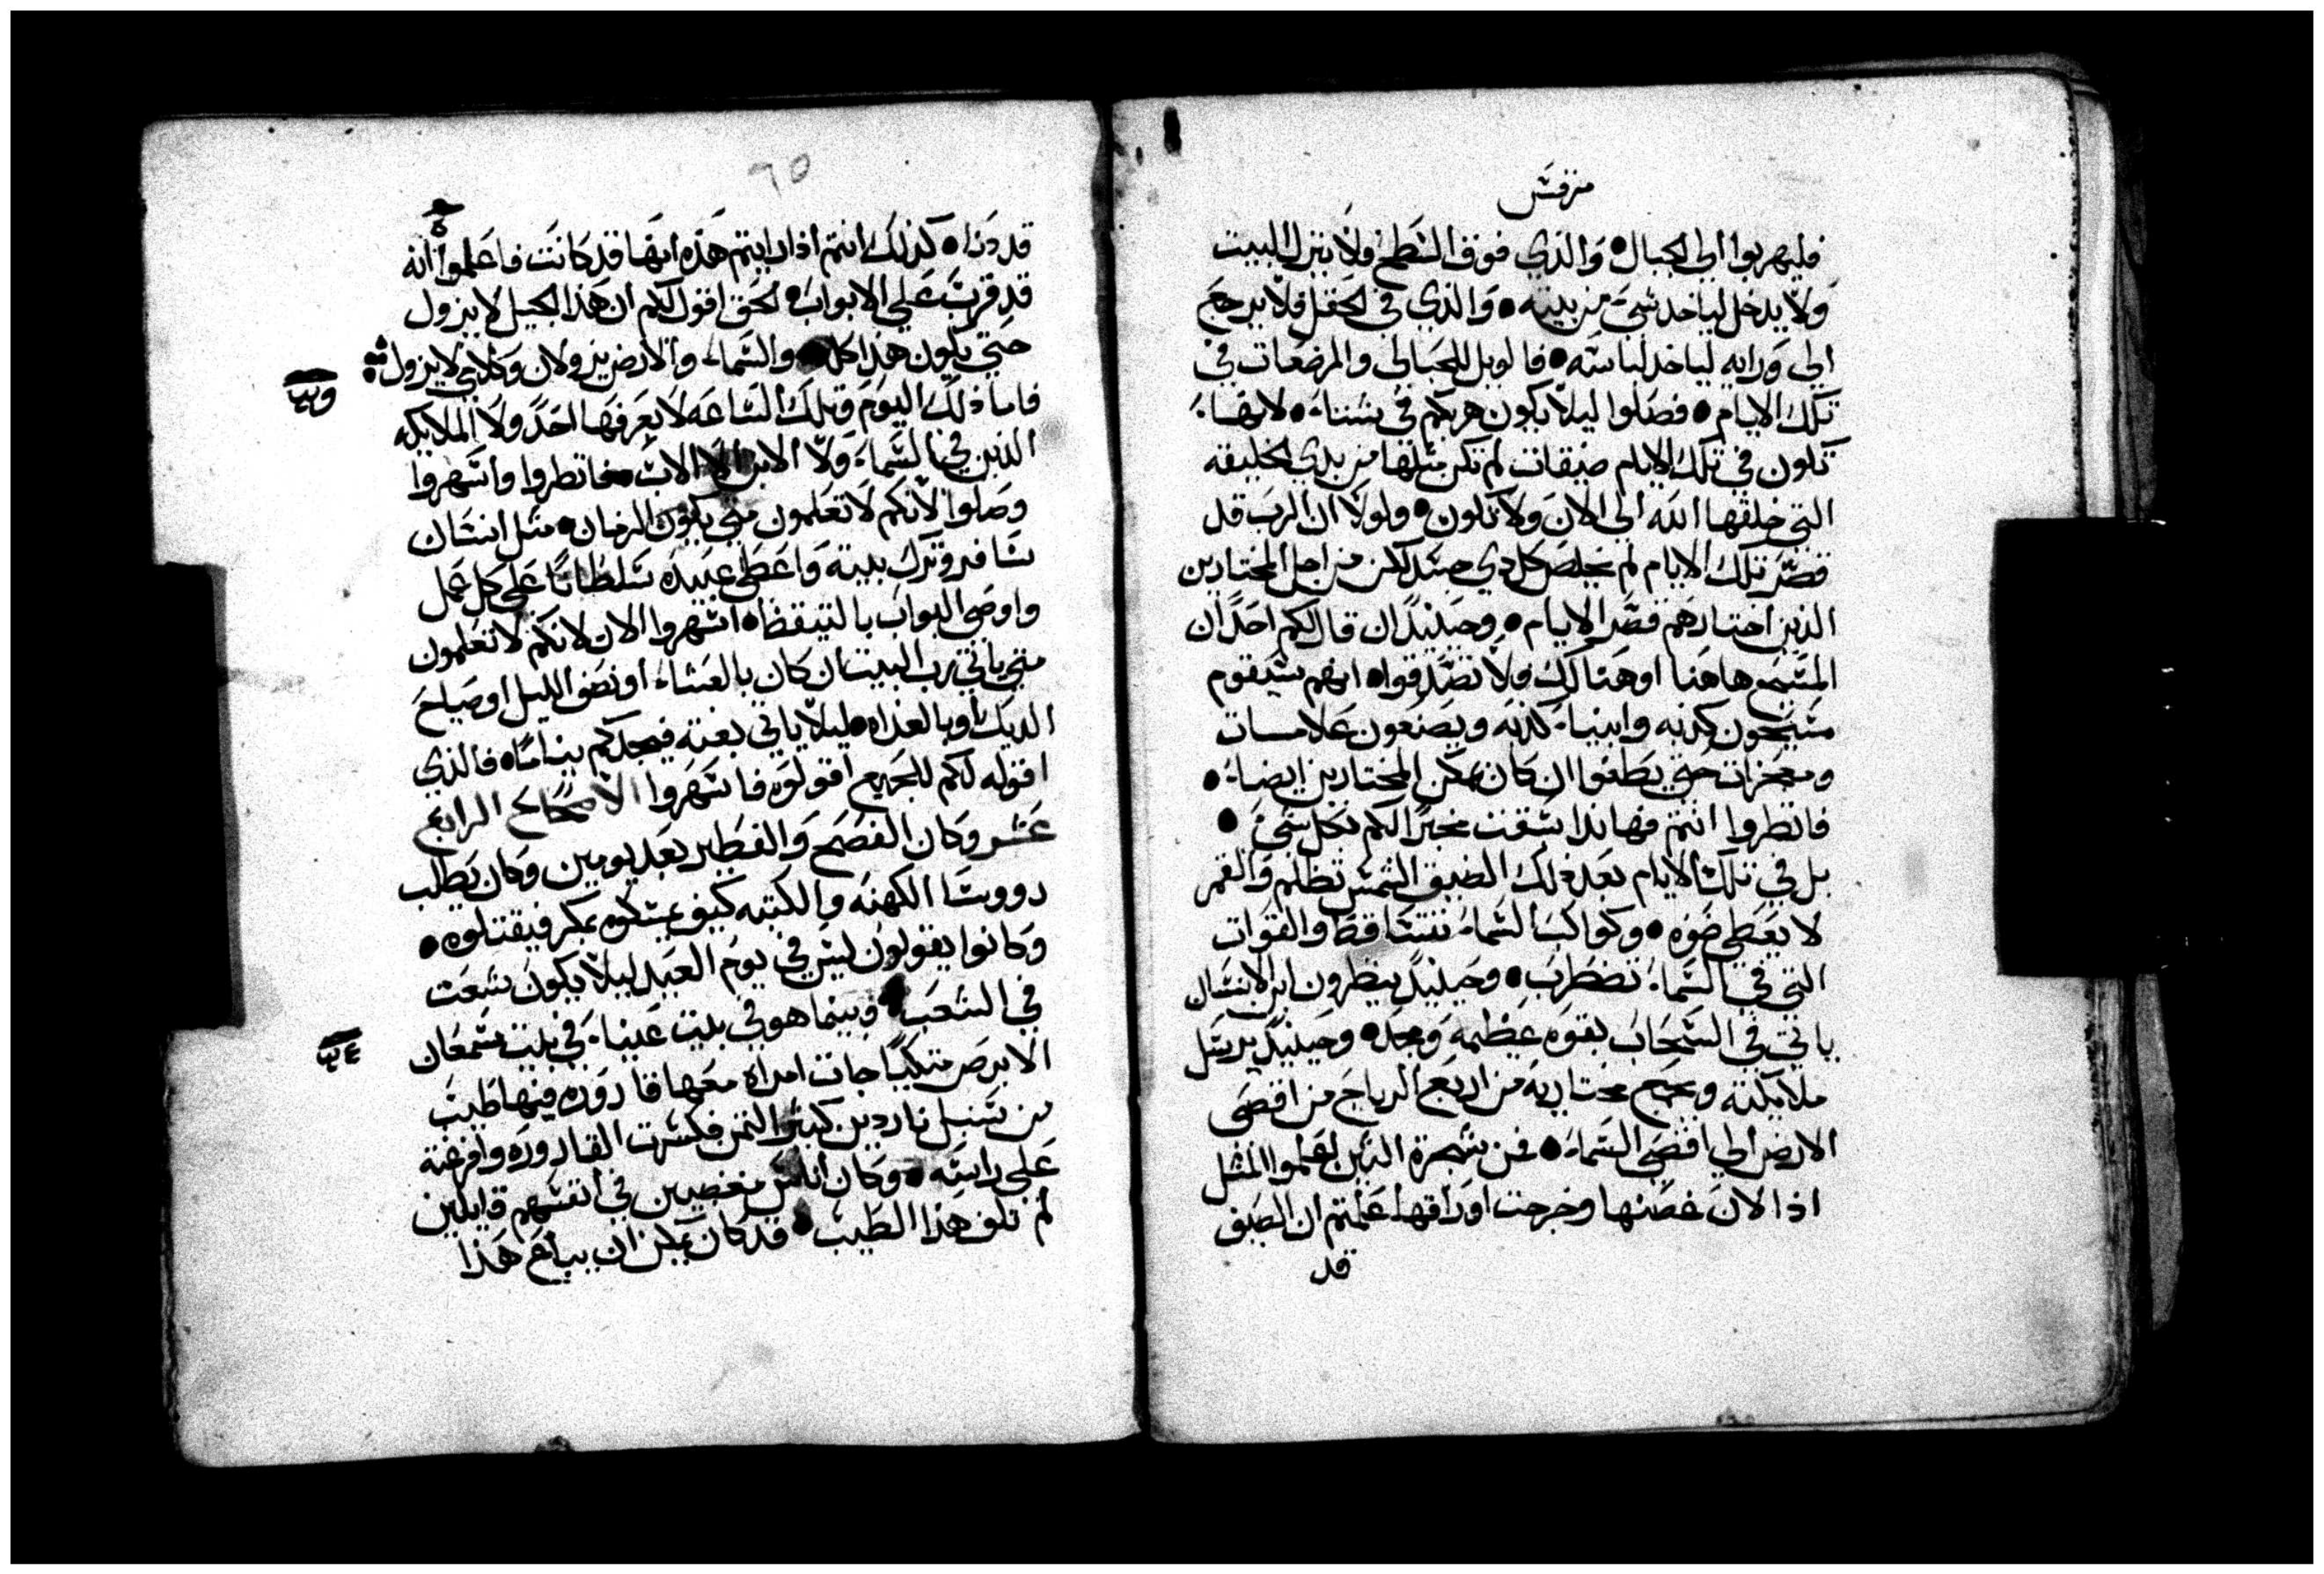 مرقس
فليهربوا الي الجبال • والذي فوق السطح فلا ينزل البيت
ولا يدخل لياخد شي من بيته • والذي في الحقل فلا يرجع
الي ورايه لياخد لباسه • فالويل للحبالي والمرضعات في
تلك الايام • فصلوا ليلا يكون هربكم في شتاء • لانها
تكون في تلك الايام ضيقات لم تكن مثلها من بدي الخليقه
التي خلقها الله الي الان ولا تكون • ولولا ان الرب قد
قصر تلك الايام لم يخلص كل دي جسد لكن من اجل المختارين
الذين اختارهم قصر الايام • وحينيد ان قال لكم احد ان
المسيح هاهنا او هنالك فلا تصدقوا • انهم سيقوم
مسيحون كدبه وانبياء كدبه ويصنعون علامات
ومعجزات حتي يطغوا ان كان يمكن المختارين ايضاء •
فانظروا انتم فهانذا سبقت مخبرا لكم بكل شي •
بل في تلك الايام بعد ذلك الضيق الشمس تظلم والقمر
لا يعطي ضوه • وكواكب السماء تتساقط والقوات
التي في السماء تضطرب • وحينيد ينظرون ابن الانسان
ياتي في السحاب بقوه عظيمه ومجد • وحينيد يرسل
ملايكته ويجمع مختاريه من اربع الرياح من اقصي
الارض الي اقصي السماء • فمن شجرة التين تعلموا المثل
اذا لان غصنها وخرجت اوراقها علمتم ان الصيف
قد
٦٥
قد دنا • كذلك انتم اذا رايتم هذه انها قد كانت فاعلموا انه
قد قربت علي الابواب • الحق اقول لكم ان هذا الجيل لا يزول
حتي يكون هذا كله • والسماء والارض يزولان وكلامي لا يزول
فاما ذلك اليوم وتلك الساعه لا يعرفها احد ولا الملايكه
الذين في السماء ولا الابن الا الاب • فانظروا واسهروا
وصلوا لانكم لا تعلمون متي يكون الزمان • مثل انسان
سافر وترك بيته واعطي عبيده سلطانا علي كل عمل
واوصي البواب بالتيقظ • اسهروا الان لانكم لا تعلمون
متي ياتي رب البيت ان كان بالعشاء او نصف الليل او صياح
الديك او بالغداه ليلا ياتي بغته فيجدكم نياما • فالذي
اقوله لكم للجميع اقوله فاسهروا الاصحاح الرابع
عشر وكان الفصح والفطير بعد يومين وكان يطلب
رووسا الكهنه والكتبه كيف يمسكوه بمكر فيقتلوه •
وكانوا يقولون ليس في يوم العيد ليلا يكون شعت
في الشعب • وبينما هو في بيت عنياء في بيت سمعان
الابرص متكيا جات امراه معها قاروره فيها طيب
من سنبل ناردين كتير التمن فكسرت القاروره وافرغته
علي راسه • وكان اناس مغضبين في انفسهم قايلين
لم تلف هذا الطيب • قد كان يمكن ان يباع هذا